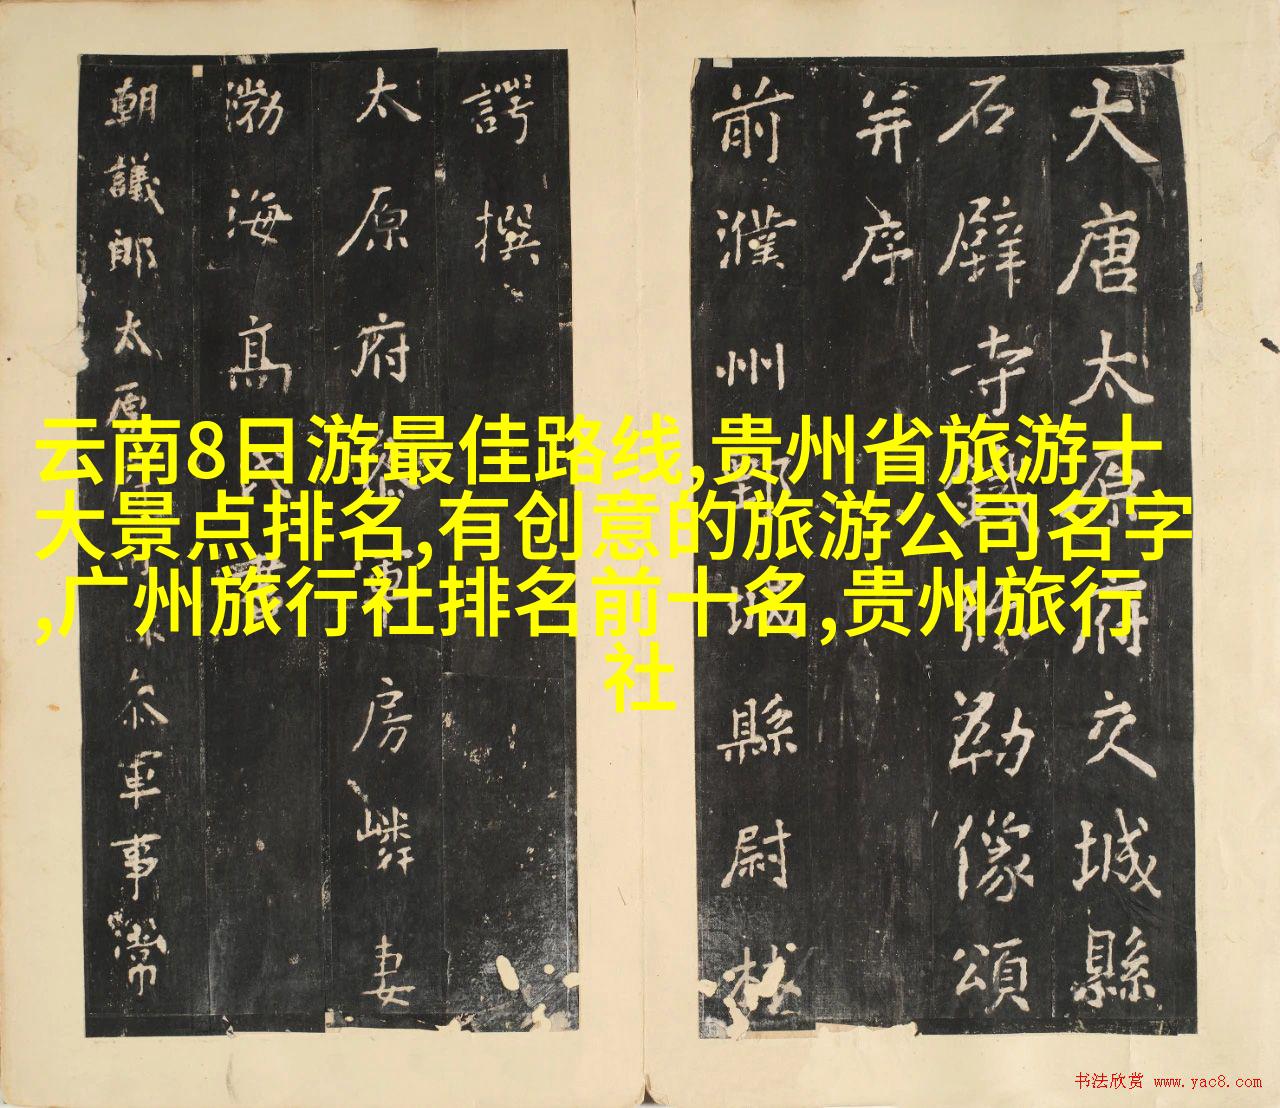 云南8日游最佳路线,贵州省旅游十
大景点排名,有创意的旅游公司名字
,广州旅行社排名前十名,贵州旅行
社
大唐太原府交城縣
石壁寺鐵弥勒像頌
并序
前濮州城縣尉林
諤撰
太原府軍房嶙妻
渤海髙氏
朝議郎太原叅軍事常
书法欣赏 www.yac8.com